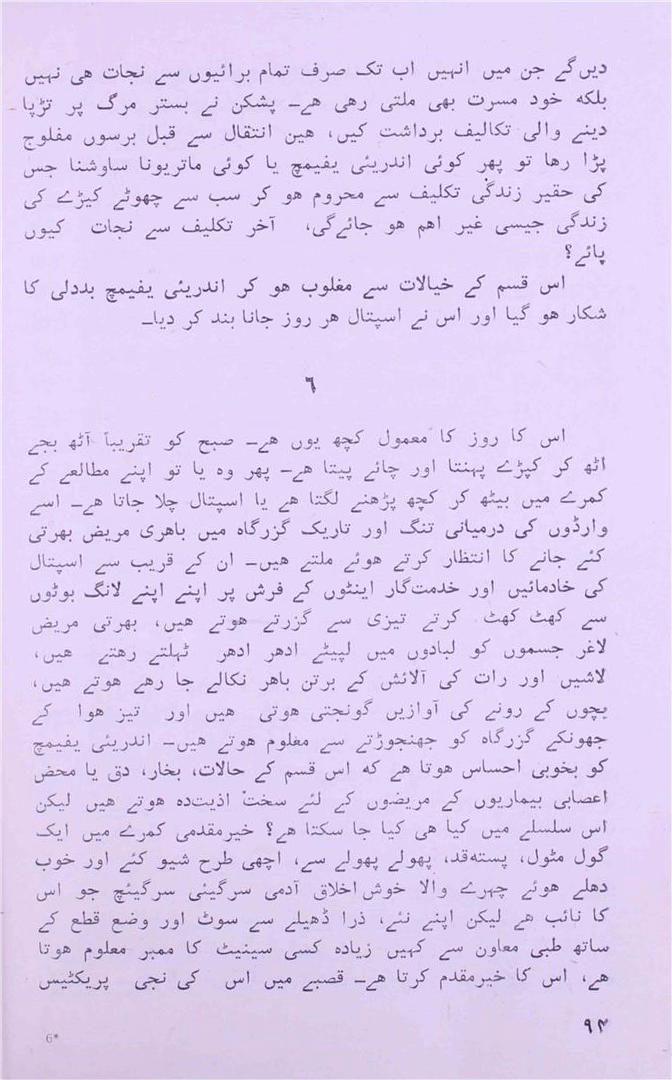 دیں گے جن میں انہیں اب تک صرف تمام برائیوں سے نجات ہی نہیں
بلکہ خود مسرت بھی ملتی رہی ہے۔ پشکن نے بستر مرگ پر تڑپا
دینے والی تکالیف برداشت کیں، ہین انتقال سے قبل برسوں مفلوج
پڑا رہا تو پھر کوئی اندریئی یفیمچ یا کوئی ماتریونا ساوشنا جس
کی حقیر زندگی تکلیف سے محروم ہو کر سب سے چھوٹے کیڑے کی
زندگی جیسی غیر اہم ہو جائے گی، آخر تکلیف سے نجات کیوں
پائے؟
اس قسم کے خیالات سے مغلوب ہو کر اندریئی یفیمچ بددلی کا
شکار ہو گیا اور اس نے اسپتال ہر روز جانا بند کر دیا۔
٦
اس کا روز کا معمول کچھ یوں ہے۔ صبح کو تقریباً آٹھ بجے
اٹھ کر کپڑے پہنتا اور چائے پیتا ہے۔ پھر وہ یا تو اپنے مطالعے کے
کمرے میں بیٹھ کر کچھ پڑھنے لگتا ہے یا اسپتال چلا جاتا ہے۔ اسے
وارڈوں کی درمیانی تنگ اور تاریک گزرگاہ میں باہری مریض بھرتی
کئے جانے کا انتظار کرتے ہوئے ملتے ہیں۔ ان کے قریب سے اسپتال
کی خادمائیں اور خدمت گار اینٹوں کے فرش پر اپنے اپنے لانگ بوٹوں
سے کھٹ کھٹ کرتے تیزی سے گزرتے ہوتے ہیں، بھرتی مریض
لاغر جسموں کو لبادوں میں لپیٹے ادھر ادھر ٹہلتے رہتے ہیں،
لاشیں اور رات کی آلائش کے برتن باہر نکالے جا رہے ہوتے ہیں،
بچوں کے رونے کی آوازیں گونجتی ہوتی ہیں اور تیز ہوا کے
جھونکے گزرگاہ کو جھنجوڑتے سے معلوم ہوتے ہیں۔ اندریئی یفیمچ
کو بخوبی احساس ہوتا ہے کہ اس قسم کے حالات، بخار، دق یا محض
اعصابی بیماریوں کے مریضوں کے لئے سخت اذیت دہ ہوتے ہیں لیکن
اس سلسلے میں کیا ہی کیا جا سکتا ہے؟ خیرمقدمی کمرے میں ایک
گول مٹول، پستہ قد، پھولے پھولے سے، اچھی طرح شیو کئے اور خوب
دھلے ہوئے چہرے والا خوش اخلاق آدمی سرگیئی سرگیئچ جو اس
کا نائب ہے لیکن اپنے نئے، ذرا ڈھیلے سے سوٹ اور وضع قطع کے
ساتھ طبی معاون سے کہیں زیادہ کسی سینیٹ کا ممبر معلوم ہوتا
ہے، اس کا خیرمقدم کرتا ہے۔ قصبے میں اس کی نجی پریکٹیس
6*
۹۴